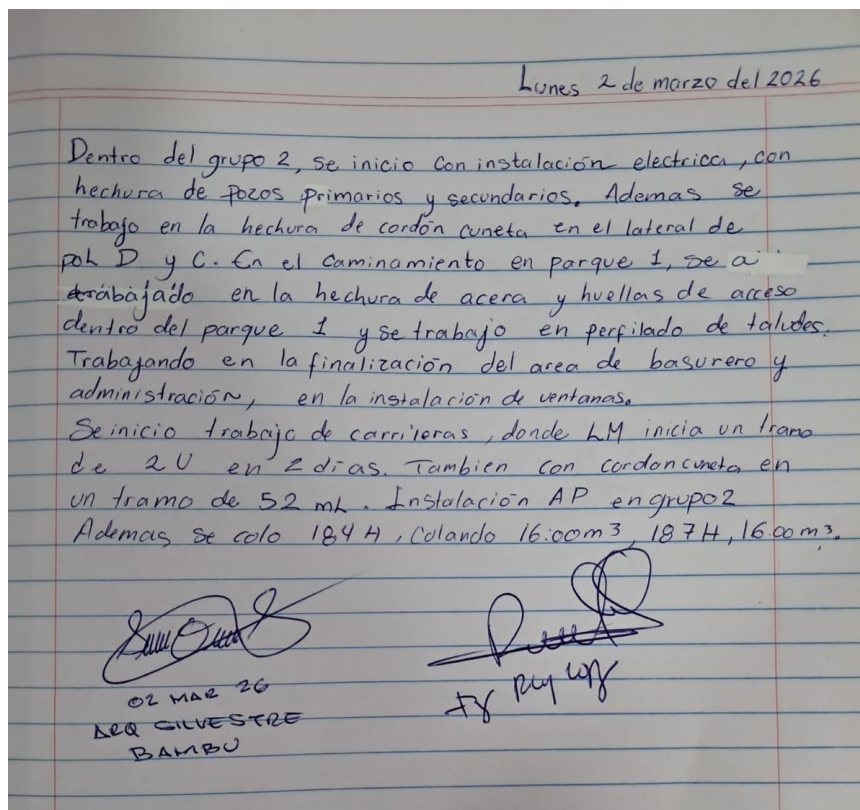 Lunes 2 de marzo del 2026
Dentro del grupo 2, se inicio con instalación electrica, con
hechura de pozos primarios y secundarios. Ademas se
trabajo en la hechura de cordón cuneta en el lateral de
pol D y C. En el caminamiento en parque 1, se a
trabajado en la hechura de acera y huellas de acceso
dentro del parque 1 y se trabajo en perfilado de taludes.
Trabajando en la finalización del area de basurero y
administración, en la instalación de ventanas.
Se inicio trabajo de carrileras, donde LM inicia un tramo
de 2U en 2 dias. Tambien con cordon cuneta en
un tramo de 52 mL. Instalación AP en grupo 2
Ademas se colo 184 H, Colando 16.00m3, 187H, 16.00 m3.
02 MAR 26
ARQ SILVESTRE
BAMBU